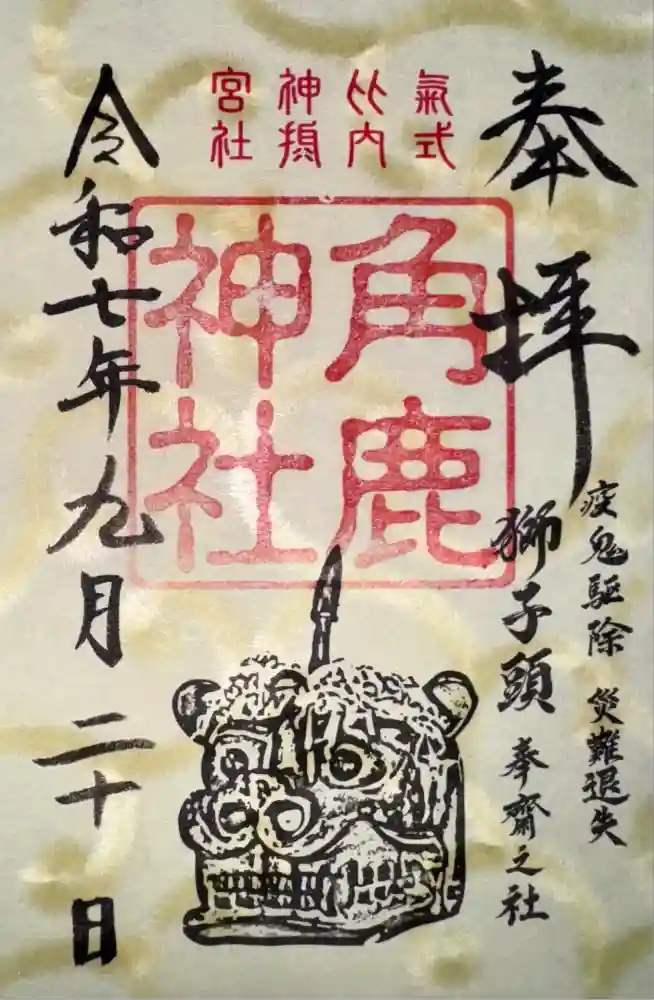 氣比神宮
式内摂社
疫鬼驅除 災難退失
奉拝
獅子頭 奉齋之社
角鹿
神社
令和七年九月二十日